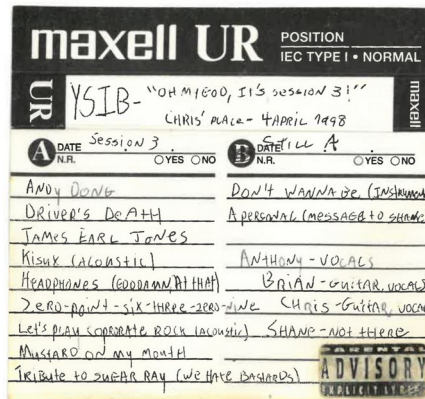 maxell UR POSITION
IEC TYPE I • NORMAL
UR
maxell
YSIB- "OH MY GOD, It's SESSION 3!"
CHRIS' PLACE - 4 APRIL 1998
A DATE Session 3
N.R. YES NO
B DATE STILL A
N.R. YES NO
ANDY DONG
DRIVER'S DeATH
JAMES EARL JONES
Kisux (ACOUSTIC)
HEADPHONES (GODDAMN, At tHAt)
Zero-point-six-three-zero-nine
Let's PLAY CORPORATE ROCK (acoustic)
MUSTARD ON MY MOUTH
TRIBUTE TO SUGAR RAY (WE HATE BASTARDS)
DON'T WANNA Be (INSTRUMEN
A PERSONAL (MESSAGE to SHANE
ANTHONY - VOCALS
BRIAN - GUITAR, VOCALS
CHRIS - GUITAR, VOCA
SHANE - NOT HERE
PARENTAL
ADVISORY
EXPLICIT LYRICS